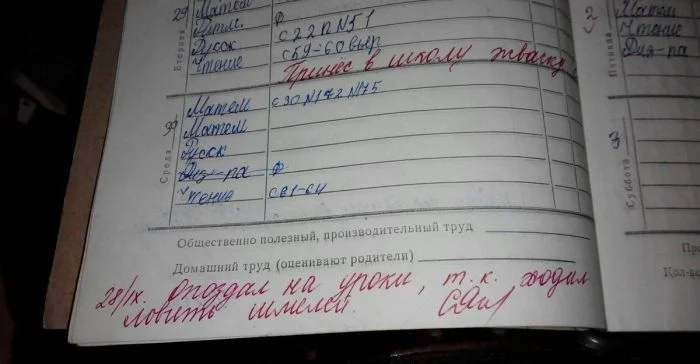 29
Вторник
Матем
Ритм. ф
Русск с 22 П N51
Чтение с 59-60 выр
Принёс в школу жвачку
30
Среда
Матем с 30 N172 N175
Матем
Русск
Физ-ра ф
Чтение с 61-64
Общественно полезный, производительный труд
Домашний труд (оценивают родители)
28/IX. Опоздал на уроки, т.к. ходил
ловить шмелей.
2
Пятница
Матем
Чтение
Физ-ра
3
Суббота
Кол-во